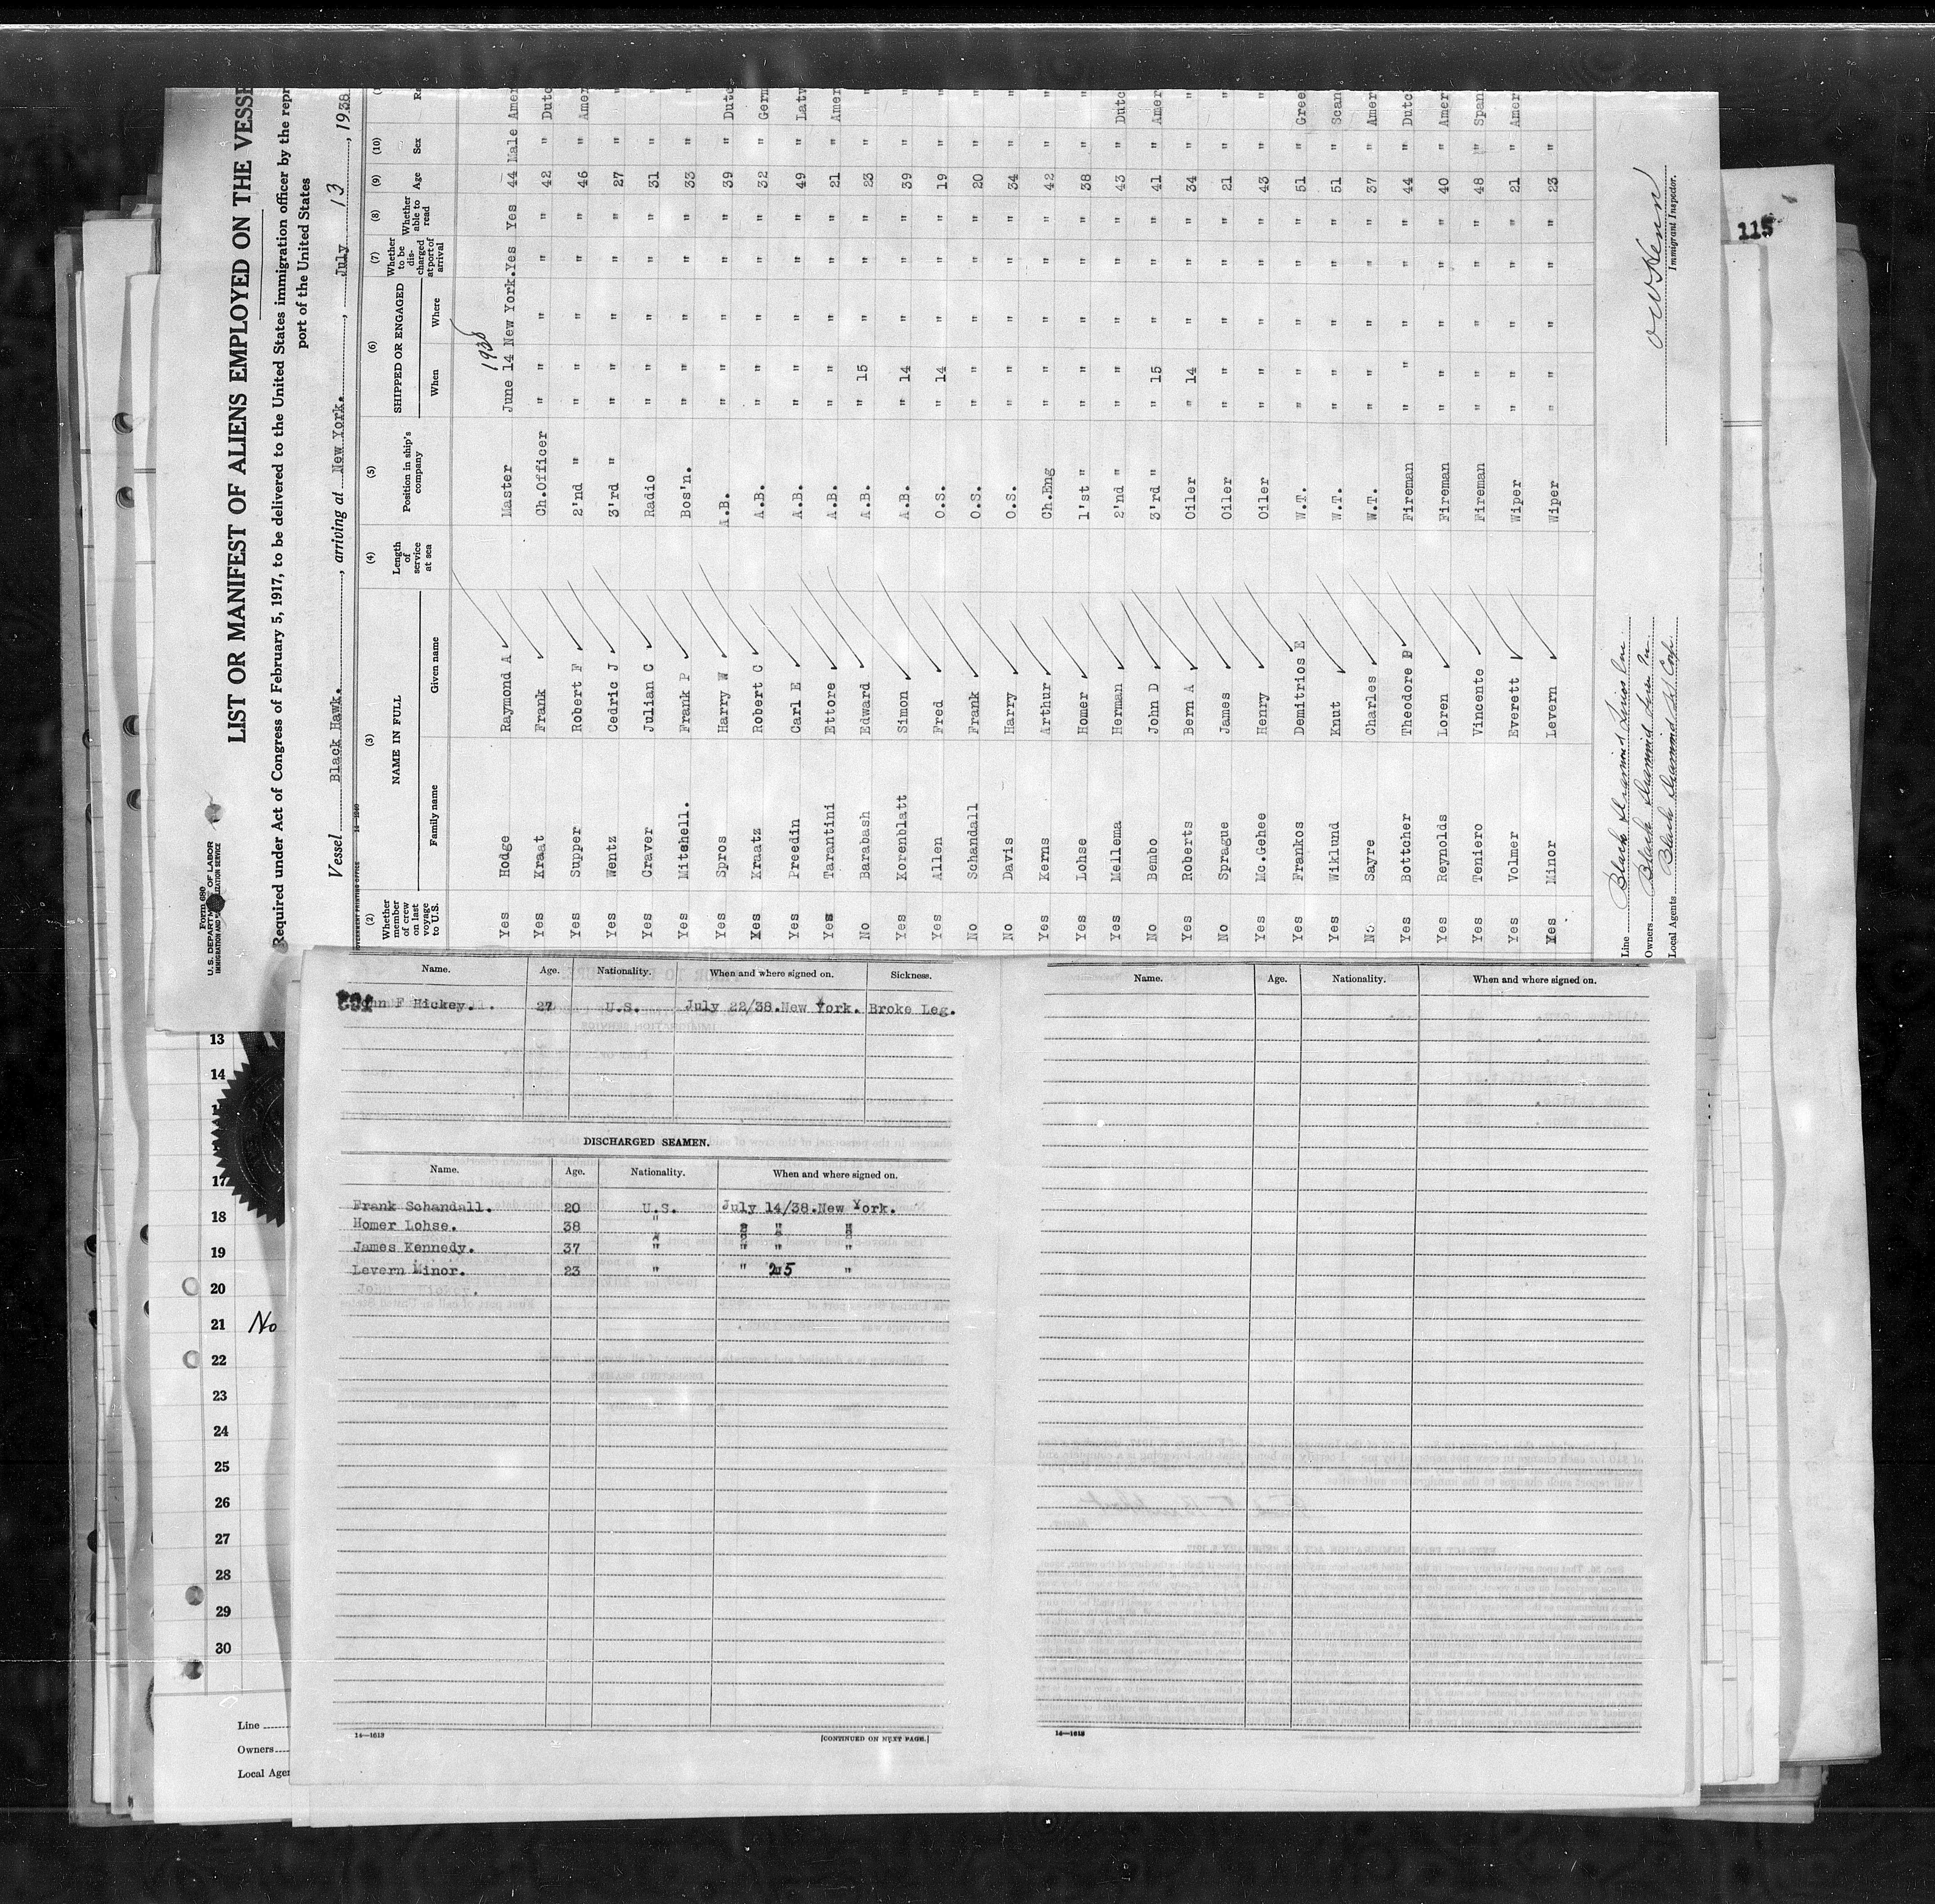 Form 680
U. S. DEPARTMENT OF LABOR
LIST OR MANIFEST OF ALIENS EMPLOYED ON THE VESSE
Required under Act of Congress of February 5, 1917, to be delivered to the United States immigration officer by the repr
port of the United States
Vessel Black Hawk. , arriving at New York. , July 13 , 1938
GOVERNMENT PRINTING OFFICE 14—1240
(2) (3) (4) (5) (6) (7) (8) (9) (10)
Whether member of crew on last voyage to U.S. NAME IN FULL Family name Given name Length of service at sea Position in ship's company SHIPPED OR ENGAGED When Where Whether to be discharged at port of arrival Whether able to read Age Sex Ra
1938
Yes Hodge Raymond A Master June 14 New York. Yes Yes 44 Male Amer
Yes Kraat Frank Ch.Officer " " " " " 42 " Dutc
Yes Supper Robert F 2'nd " " " " " " 46 " Amer
Yes Wentz Cedric J 3'rd " " " " " " 27 " "
Yes Graver Julian C Radio " " " " " 31 " "
Yes Mitchell. Frank P Bos'n. " " " " " 33 " "
Yes Spros Harry W A.B. " " " " " 39 " Dutc
Yes Kraatz Robert C A.B. " " " " " 32 " Germ
Yes Preedin Carl E A.B. " " " " " 49 " Latv
Yes Tarantini Ettore A.B. " " " " " 21 " Amer
No Barabash Edward A.B. " 15 " " " 23 " "
Yes Korenblatt Simon A.B. " 14 " " " 39 " "
Yes Allen Fred O.S. " 14 " " " 19 " "
No Schandall Frank O.S. " " " " " 20 " "
No Davis Harry O.S. " " " " " 34 " "
Yes Kerns Arthur Ch.Eng " " " " " 42 " "
Yes Lohse Homer 1'st " " " " " " 38 " "
Yes Mellema Herman 2'nd " " " " " " 43 " Dutc
No Bembo John D 3'rd " " 15 " " " 41 " Amer
Yes Roberts Bern A Oiler " 14 " " " 34 " "
No Sprague James Oiler " " " " " 21 " "
Yes Mc.Gehee Henry Oiler " " " " " 43 " "
Yes Frankos Demitrios E W.T. " " " " " 51 " Gree
Yes Wiklund Knut W.T. " " " " " 51 " Scan
No Sayre Charles W.T. " " " " " 37 " Amer
Yes Bottcher Theodore B Fireman " " " " " 44 " Dutc
Yes Reynolds Loren Fireman " " " " " 40 " Amer
Yes Teniero Vincente Fireman " " " " " 48 " Span
Yes Volmer Everett Wiper " " " " " 21 " Amer
Yes Minor Levern Wiper " " " " " 23 " "
Line Black Diamond Lines Inc
Owners Black Diamond Lines In
Local Agents Black Diamond SS Corp
Immigrant Inspector.
115
Name. Age. Nationality. When and where signed on. Sickness.
John F Hickey. 27 U.S. July 22/38.New York. Broke Leg.
DISCHARGED SEAMEN.
Name. Age. Nationality. When and where signed on.
Frank Schandall. 20 U.S. July 14/38.New York.
Homer Lohse. 38 " " " "
James Kennedy. 37 " " " "
Levern Minor. 23 " " 25 "
14—1613
[CONTINUED ON NEXT PAGE.]
Name. Age. Nationality. When and where signed on.
14—1613
13
14
17
18
19
20
21 No
22
23
24
25
26
27
28
29
30
Line
Owners
Local Agen